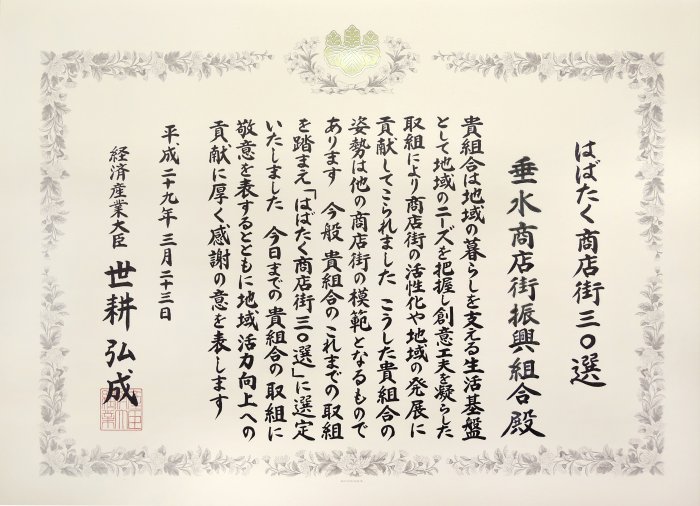 はばたく商店街三〇選
垂水商店街振興組合殿
貴組合は地域の暮らしを支える生活基盤
として地域のニーズを把握し創意工夫を凝らした
取組により商店街の活性化や地域の発展に
貢献してこられました こうした貴組合の
姿勢は他の商店街の模範となるもので
あります 今般 貴組合のこれまでの取組
を踏まえ「はばたく商店街三〇選」に選定
いたしました 今日までの貴組合の取組に
敬意を表するとともに地域活力向上への
貢献に厚く感謝の意を表します
平成二十九年三月二十三日
経済産業大臣 世耕弘成